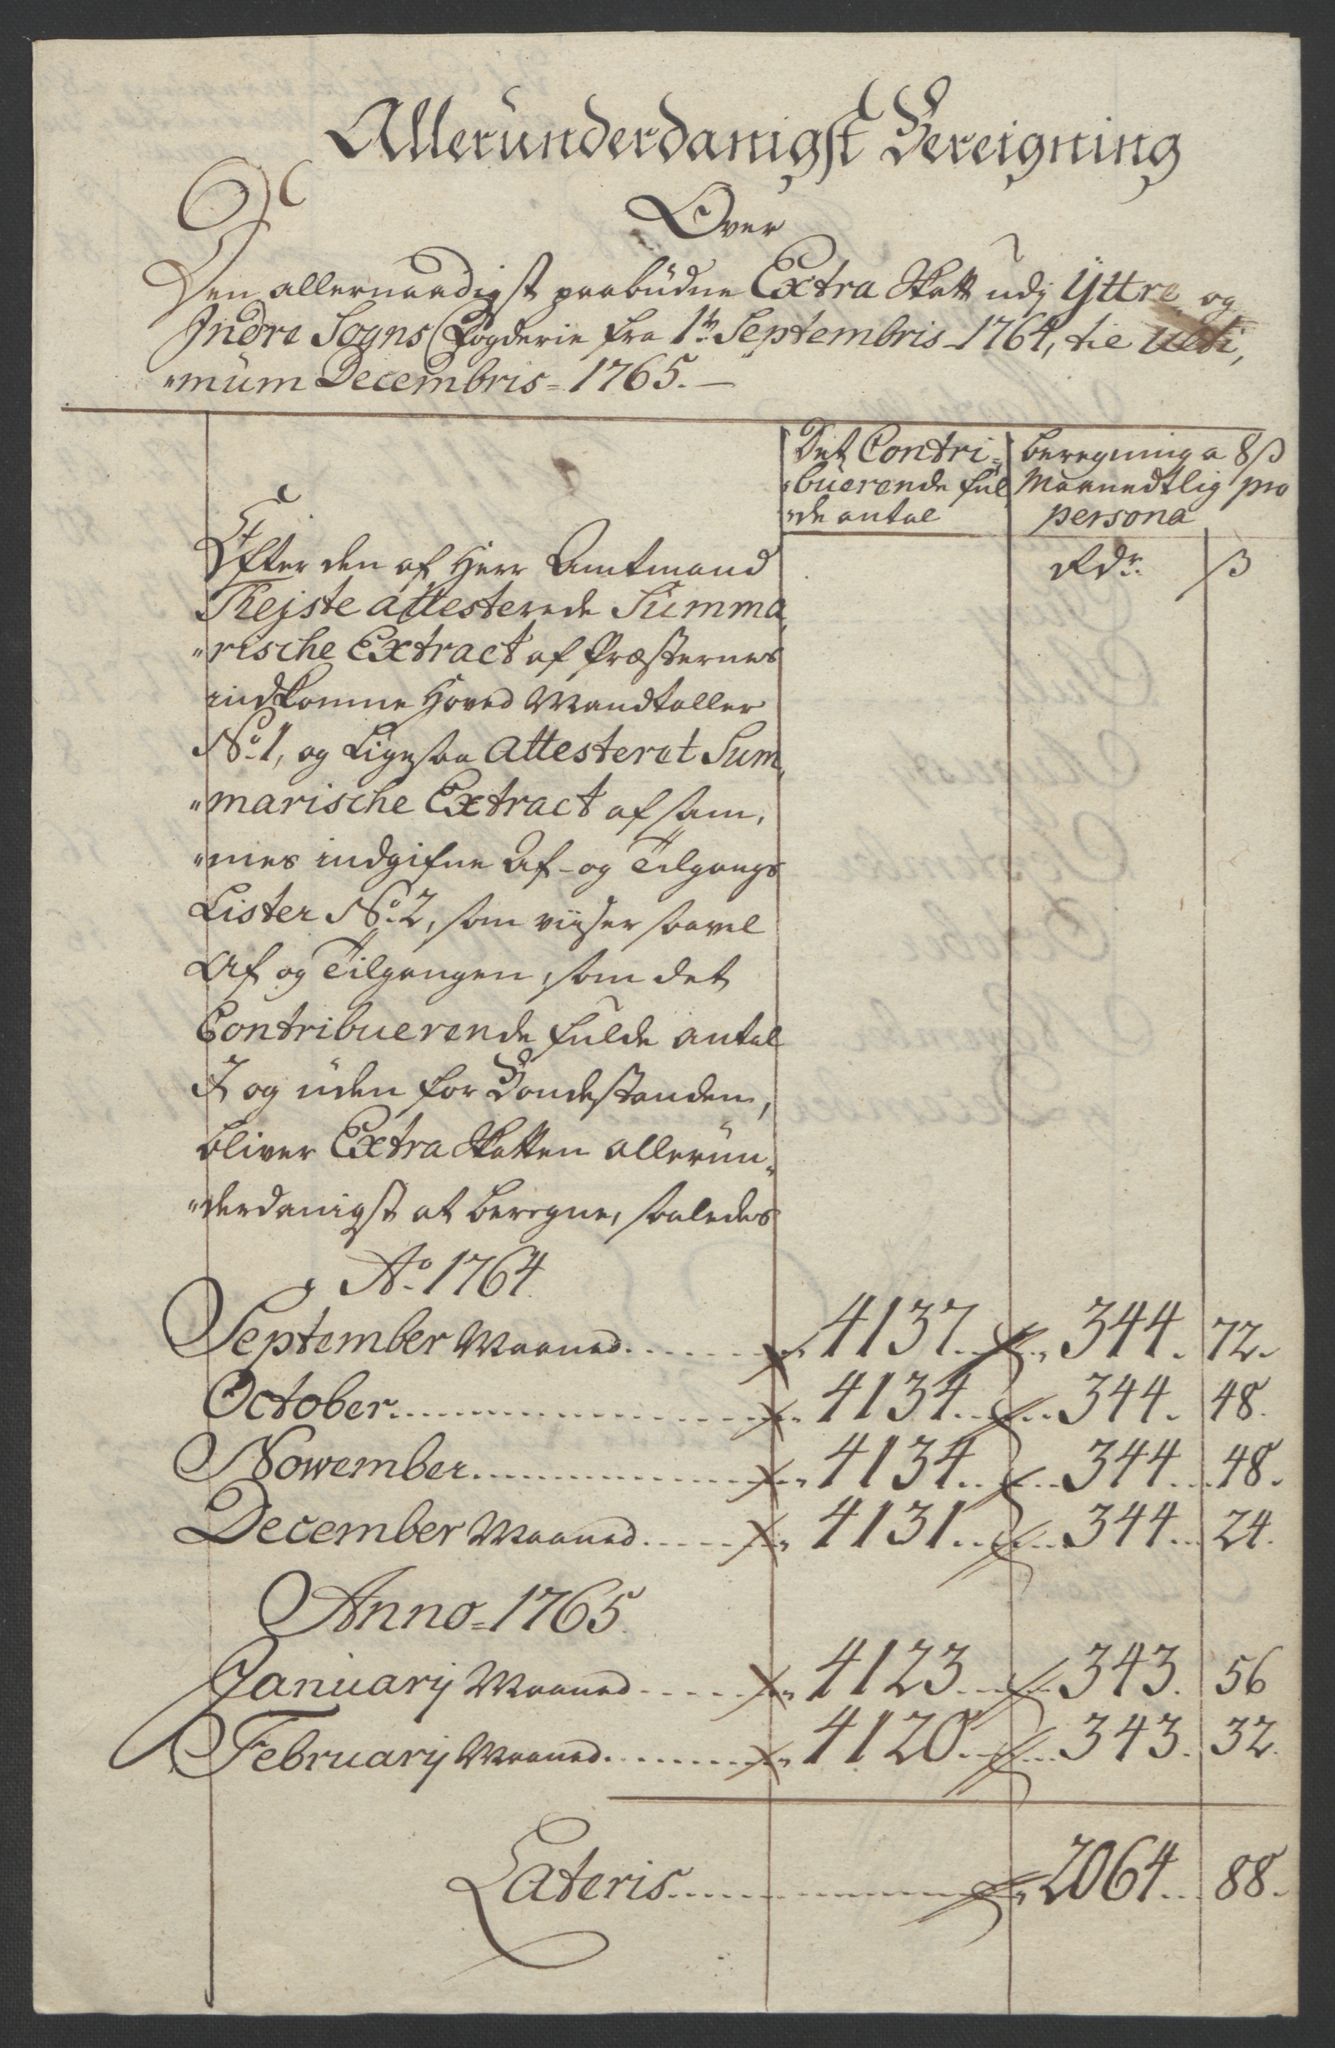 Alleründerdanigst Bereigning
Over
Den allernaadigst paabüdne Extra Skatt udj Yttre og
Indre Sogns Fogderie fra 1te Septembris 1764, til Ulti,
"mum Decembris = 1765. —
Det Contri-
"buerende ful
"de antal
beregning a 8 ß
Maanedtlig pro
persona
Rdr. ß
Efter den af Herr Amtmand
Thejste attesterede Summa,
"rische Extract af Præsternes
indkomne Hoved Mandtaller
No. 1, og Ligesaa Attesteret Sum,
"marische Extract af sam,
"mes indgifne Af- og Tilgangs
Lister No. 2, som viiser saavel
Af og Tilgangen, som det
Contribuerende fulde antal
J og üden for Bondestanden,
bliver Extra Skatten allerün,
"derdanigst at beregne, saaledes
Ao. 1764.
September Maaned 4137. 344. 72.
October 4134. 344. 48.
Nowember 4134. 344. 48.
December Maaned 4131. 344. 24.
Anno = 1765.
Januarij Maaned 4123. 343. 56
Februarij Maaned 4120. 343. 32.
Lateris 2064. 88.